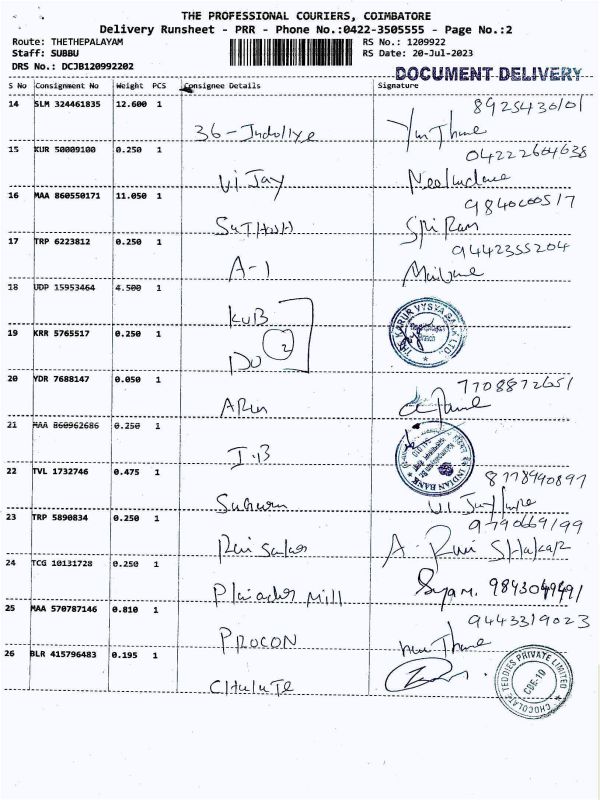 THE PROFESSIONAL COURIERS, COIMBATORE
Delivery Runsheet - PRR - Phone No.:0422-3505555 - Page No.:2
Route: THETHEPALAYAM RS No.: 1209922
Staff: SUBBU RS Date: 20-Jul-2023
DRS No.: DCJB120992202 DOCUMENT DELIVERY
S No Consignment No Weight PCS Consignee Details Signature
14 SLM 324461835 12.600 1 8925430101
36-
15 KUR 50009100 0.250 1 04222604638
Vijay
16 MAA 860550171 11.050 1
Sri Ram
17 TRP 6223812 0.250 1 9442355204
A-1
18 UDP 15953464 4.500 1
KVB
THE KARUR VYSYA BANK LTD.
19 KRR 5765517 0.250 1
DO 2
20 YDR 7688147 0.050 1 7708872651
Arun
21 MAA 860962686 0.250 1
I.B
INDIAN BANK
22 TVL 1732746 0.475 1 8778990897
23 TRP 5890834 0.250 1 9790669199
A-
24 TCG 10131728 0.250 1
Mill Syam. 9843049491
25 MAA 570787146 0.810 1 9443319023
PROCON
26 BLR 415796483 0.195 1
CHOCOLATE TEDDIES PRIVATE LIMITED
CBE-10